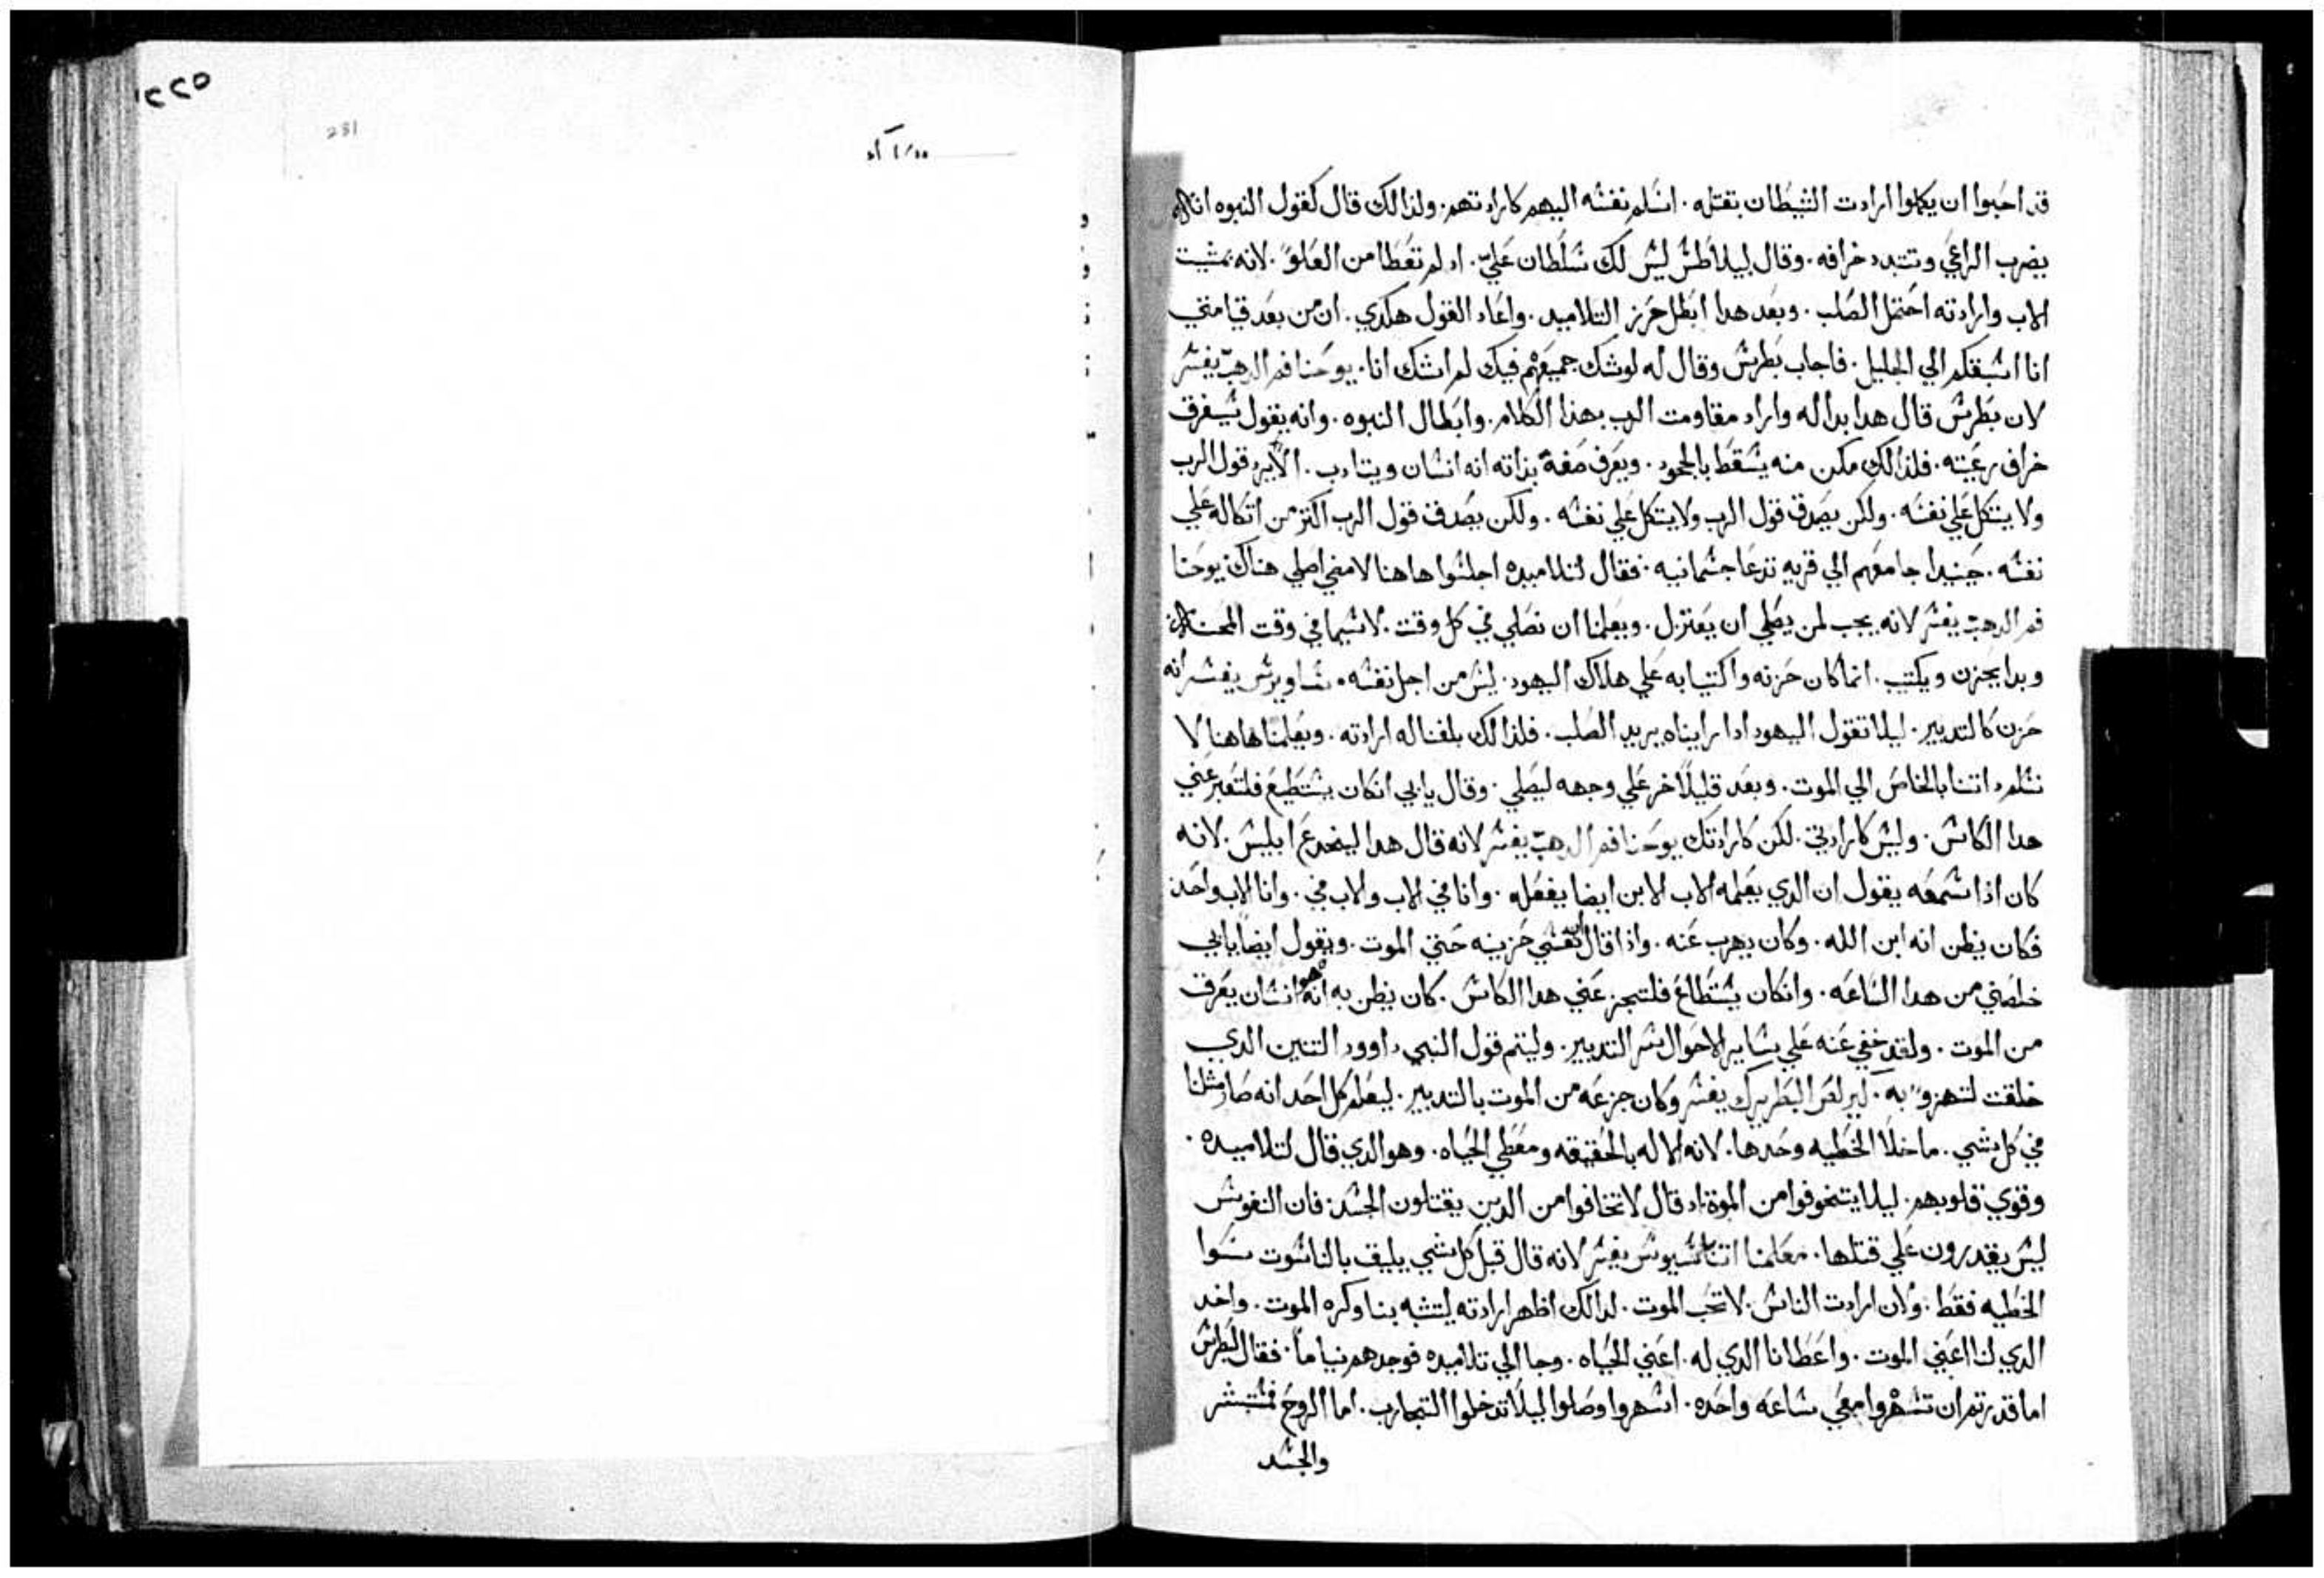 ٢٢٥
231
قد احبوا ان يكملوا ارادت الشيطان بقتله. اسلم نفسه اليهم كارادتهم. ولذالك قال كقول النبوه انا
يضرب الراعي وتتبدد خرافه. وقال لبيلاطس ليس لك سلطان علي. اد لم تعطا من العلو. لانه بمشيت
الاب وارادته احتمل الصلب. وبعد هدا ابطل حزن التلاميد. واعاد القول هكدي. ان من بعد قيامتي
انا اسبقكم الي الجليل. فاجاب بطرس وقال له لوشك جميعهم فيك لم اشك انا. يوحنا فم الدهب يفسر
لان بطرس قال هدا بداله واراد مقاومت الرب بهذا الكلام. وابطال النبوه. وانه يقول سيفرق
خراف رعيته. فلذالك مكن منه يسقط بالجحود. ويعرف ضعف بذاته انه انسان ويتادب. الا يرد قول الرب
ولا يتكل علي نفسه. ولكن يصدق قول الرب ولا يتكل علي نفسه. ولكن يصدق قول الرب اكتر من اتكاله علي
نفسه. حينيدا جا معهم الي قريه تدعا جسمانيه. فقال لتلاميده اجلسوا هاهنا لامضي اصلي هناك يوحنا
فم الدهب يفسر لانه يجب لمن يصلي ان يعتزل. ويعلمنا ان نصلي في كل وقت. لاسيما في وقت المحن
وبدا يحزن ويكتيب. انما كان حزنه واكتيابه علي هلاك اليهود. ليس من اجل نفسه. ساويرس يفسر انه
حزن كالتدبير. ليلا تقول اليهود ادا رايناه يريد الصلب. فلذالك بلغنا له ارادته. ويعلمنا هاهنا لا
نسلم داتنا بالخاص الي الموت. وبعد قليلا خر علي وجهه ليصلي. وقال يا ابي انكان يستطيع فلتعبر عني
هدا الكاس. وليس كارادتي. لكن كارادتك يوحنا فم الدهب يفسر لانه قال هدا لينخدع ابليس. لانه
كان اذا سمعه يقول ان الدي يعمله الاب الابن ايضا يفعله. وانا في الاب والاب في. وانا والاب واحد
فكان يظن انه ابن الله. وكان يهرب عنه. واذا قال ان نفسي حزينه حتي الموت. ويقول ايضا يا ابي
خلصني من هدا الساعه. وانكان يستطاع فلتجز عني هدا الكاس. كان يظن به انه هو انسان يعرف
من الموت. ولقد خفي عنه علي ساير الاحوال سر التدبير. وليتم قول النبي داوود التنين الدي
خلقت لتهزو به. كيرلص البطريرك يفسر وكان جزعه من الموت بالتدبير. ليعلم كل احد انه صار مثلنا
في كل شي. ما خلا الخطيه وحدها. لانه الاله بالحقيقه ومعطي الحياه. وهو الدي قال لتلاميده.
وقوي قلوبهم. ليلا يتخوفوا من الموت اد قال لا تخافوا من الدين يقتلون الجسد. فان النفوس
ليس يقدرون علي قتلها. معلمنا اتناسيوس يفسر لانه قال قبل كل شي يليق بالناسوت سوا
الخطيه فقط. ولان ارادت الناس لا تحب الموت. لدالك اظهر ارادته ليتشبه بنا وكره الموت. واخد
الدي لنا اعني الموت. واعطانا الدي له. اعني الحياه. وجا الي تلاميده فوجدهم نياما. فقال لبطرس
اما قدرتم ان تسهروا معي ساعه واحده. اسهروا وصلوا ليلا تدخلوا التجارب. اما الروح فمستبشر
والجسد